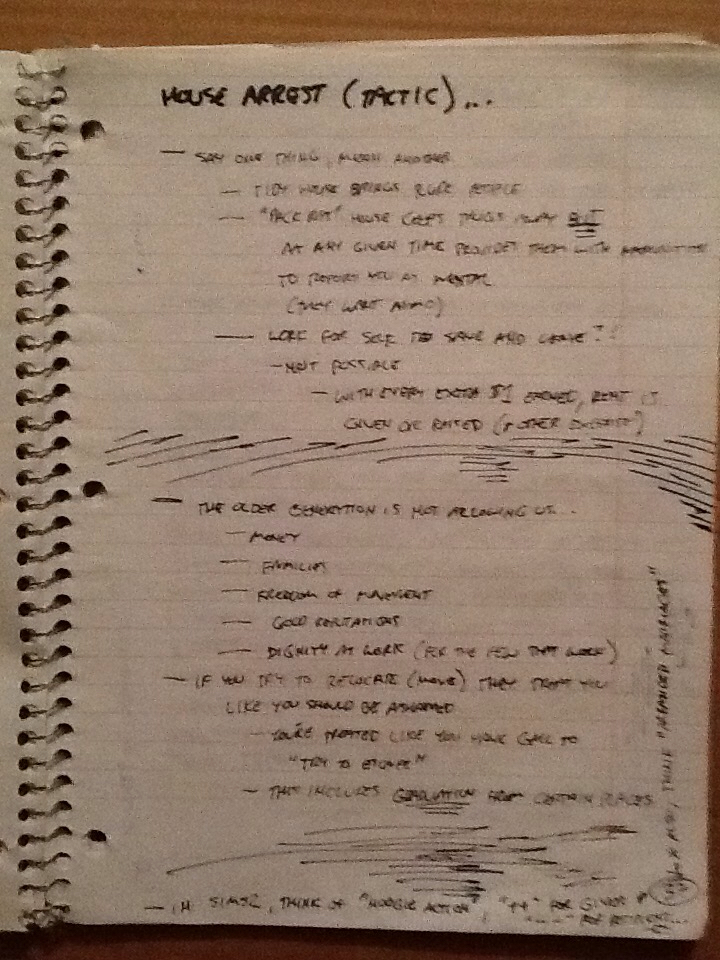 HOUSE ARREST (TACTIC)...
— SAY ONE THING, MEAN ANOTHER
— TIDY HOUSE BRINGS RUDE PEOPLE
— "PACK RAT" HOUSE KEEPS THUGS AWAY BUT
AT ANY GIVEN TIME PROVIDES THEM WITH
TO REPORT YOU AS MENTAL
(THEY WANT AMMO)
— WORK FOR SELF TO SAVE AND LEAVE?!
— NOT POSSIBLE
— WITH EVERY EXTRA $1 EARNED, RENT IS
GIVEN OR RAISED (& OTHER
— THE OLDER GENERATION IS NOT ALLOWING US...
— MONEY
— FAMILIES
— FREEDOM OF MOVEMENT
— GOOD REPUTATIONS
— DIGNITY AT WORK (FOR THE FEW THAT WORK)
— IF YOU TRY TO RELOCATE (MOVE) THEY TREAT YOU
LIKE YOU SHOULD BE ASHAMED
— YOU'RE TREATED LIKE YOU HAVE GALL TO
"TRY TO ESCAPE"
— THIS INCLUDES GRADUATION FROM CERTAIN PLACES
— IN SIMS2, THINK OF "ACTION", "++" FOR GIVING &
"- -" FOR
ALSO, THINK "ARRANGED MARRIAGES"